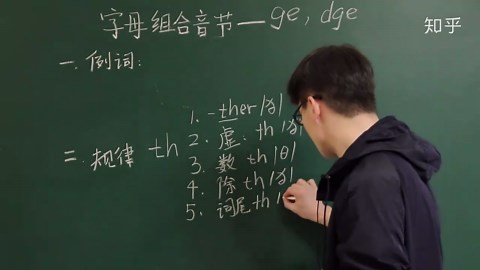 字母组合音节—ge, dge
知乎
一. 例词:
1. -ther /ð/
二. 规律 th 2. 虚: th /ð/
3. 数 th /θ/
4. 除 th /ð/
5. 词尾 th /